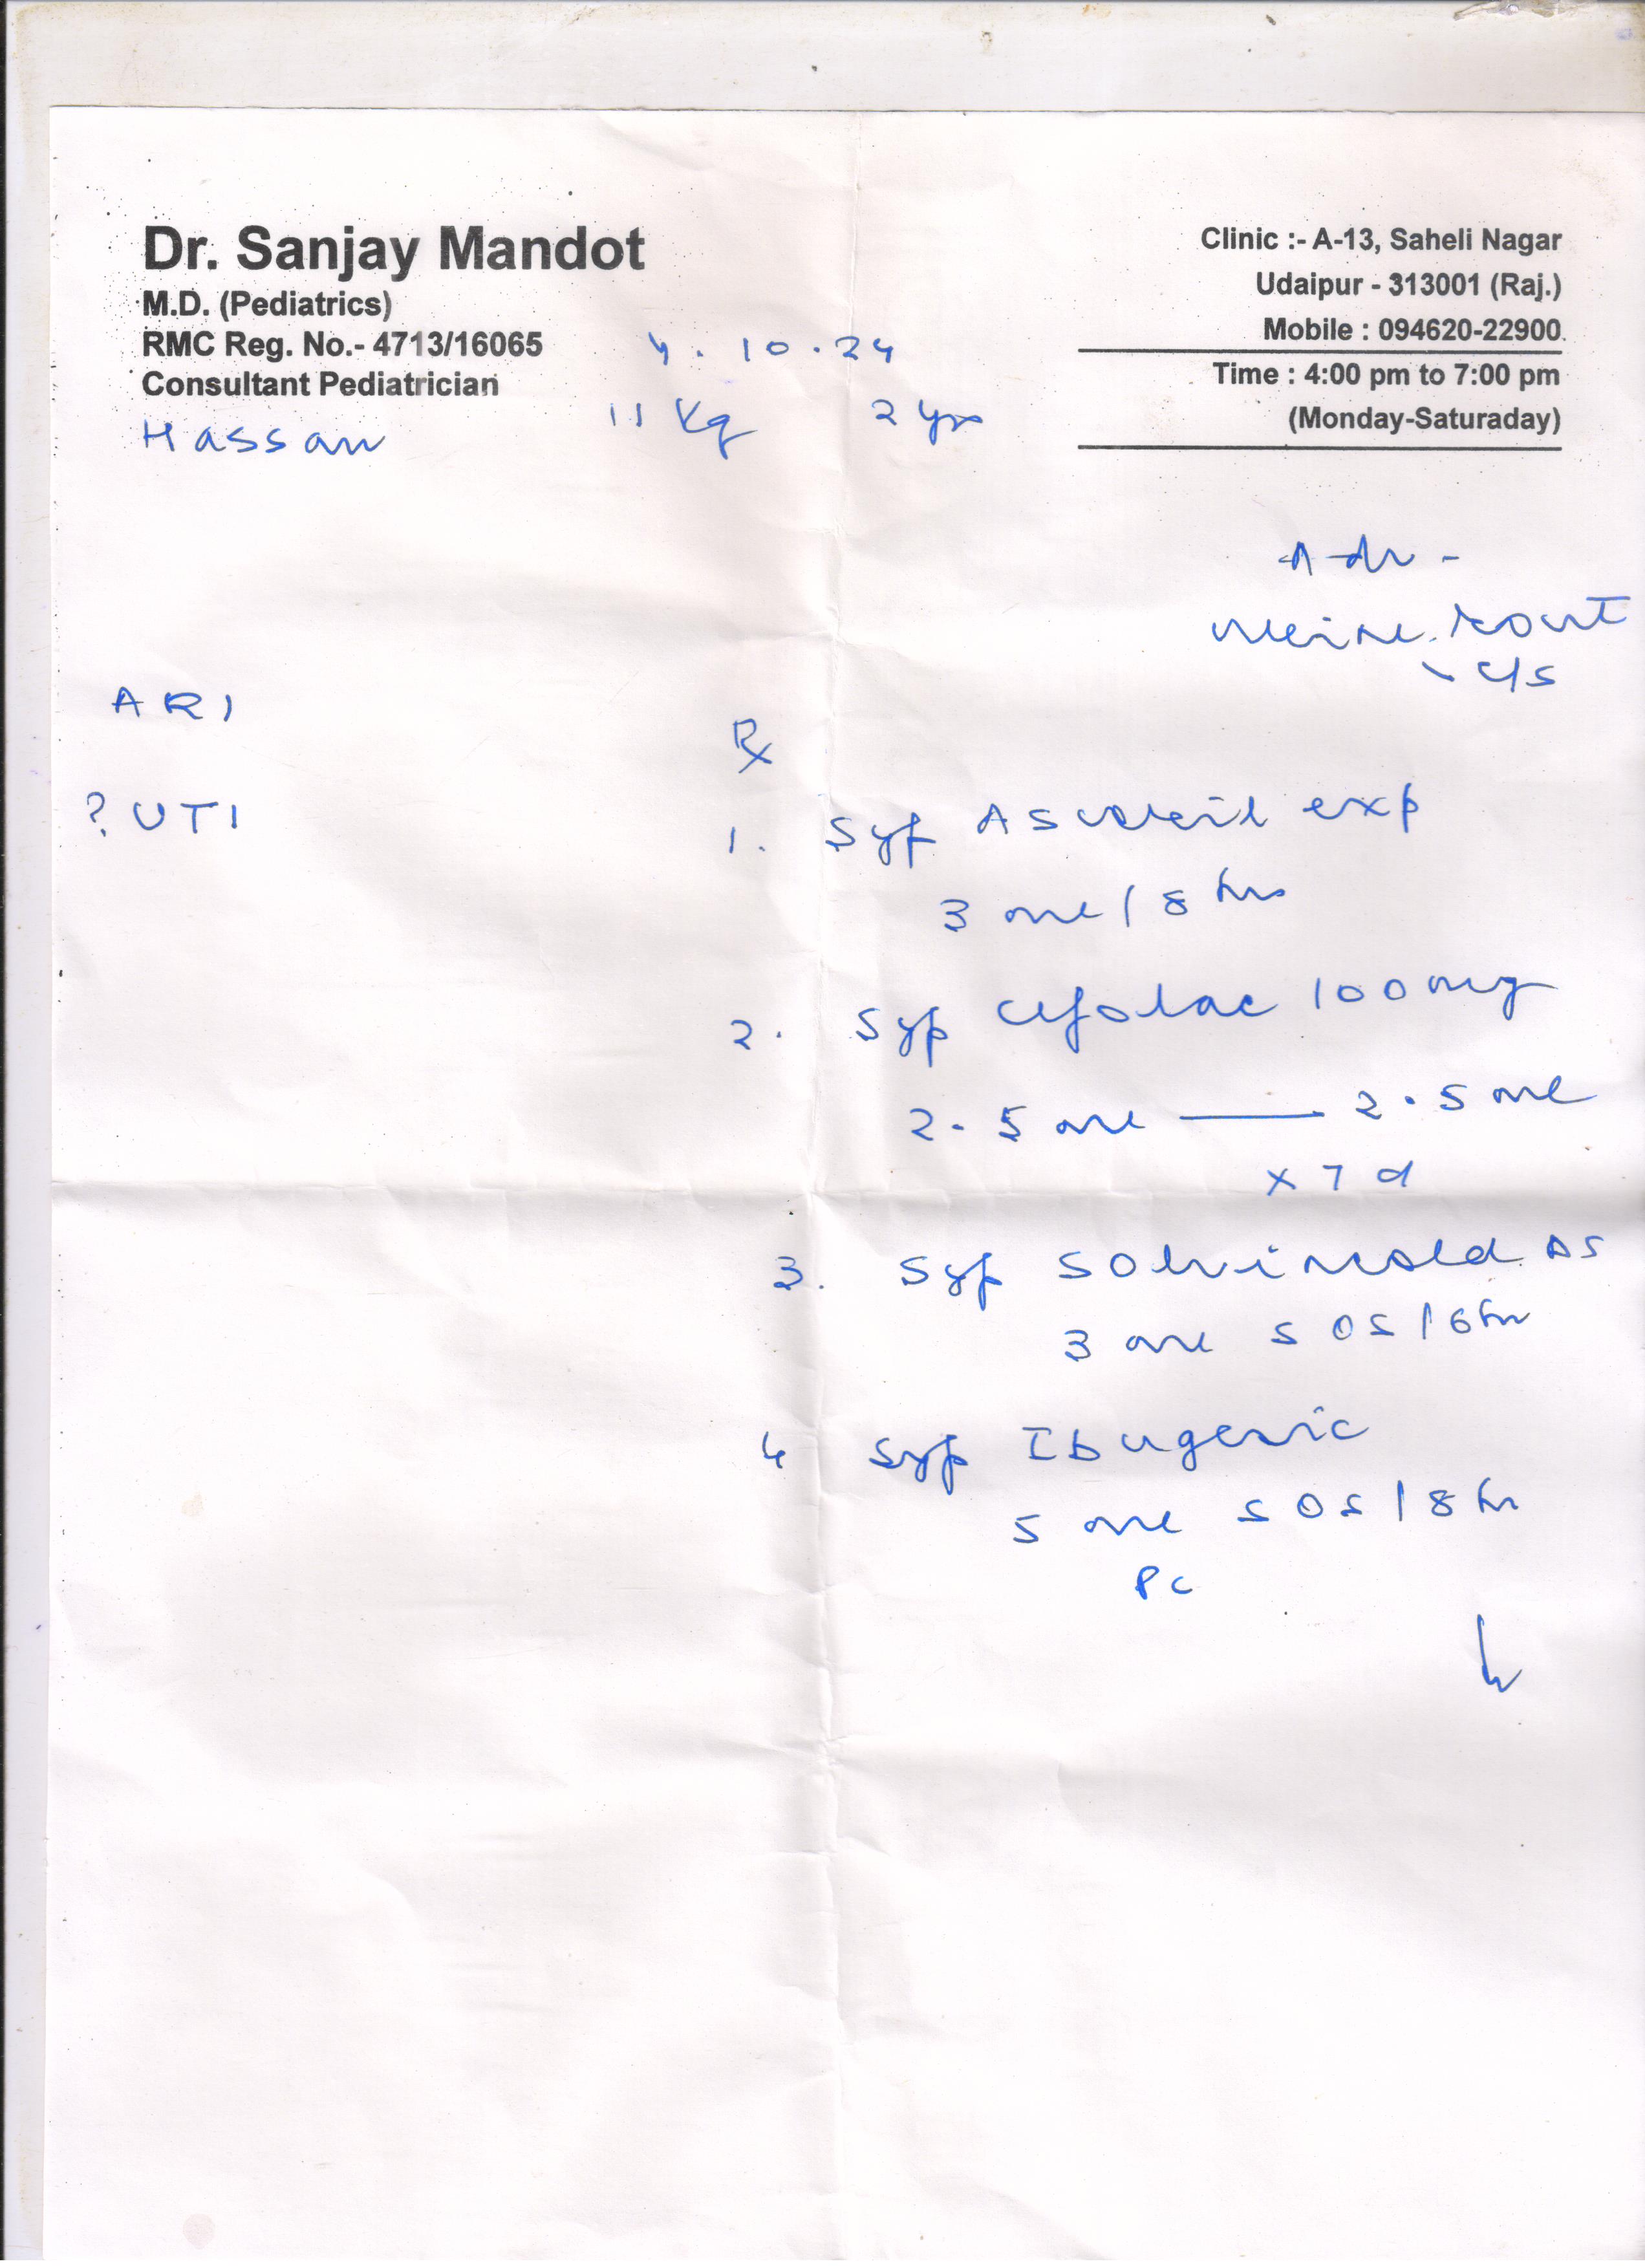 Dr. Sanjay Mandot
M.D. (Pediatrics)
RMC Reg. No.- 4713/16065
Consultant Pediatrician
Clinic :- A-13, Saheli Nagar
Udaipur - 313001 (Raj.)
Mobile : 094620-22900
Time : 4:00 pm to 7:00 pm
(Monday-Saturaday)
4.10.24
Hassan 11 Kg 2 yrs
Adv -
Urine Rout
- c/s
ARI
? UTI
Rx
1. Syp Ascoril exp
3 ml / 8 hrs
2. Syp Cefolac 100 mg
2.5 ml — 2.5 ml
x 7 d
3. Syp Solvincold AS
3 ml SOS / 6 hr
4 Syp Ibugesic
5 ml SOS / 8 hr
PC